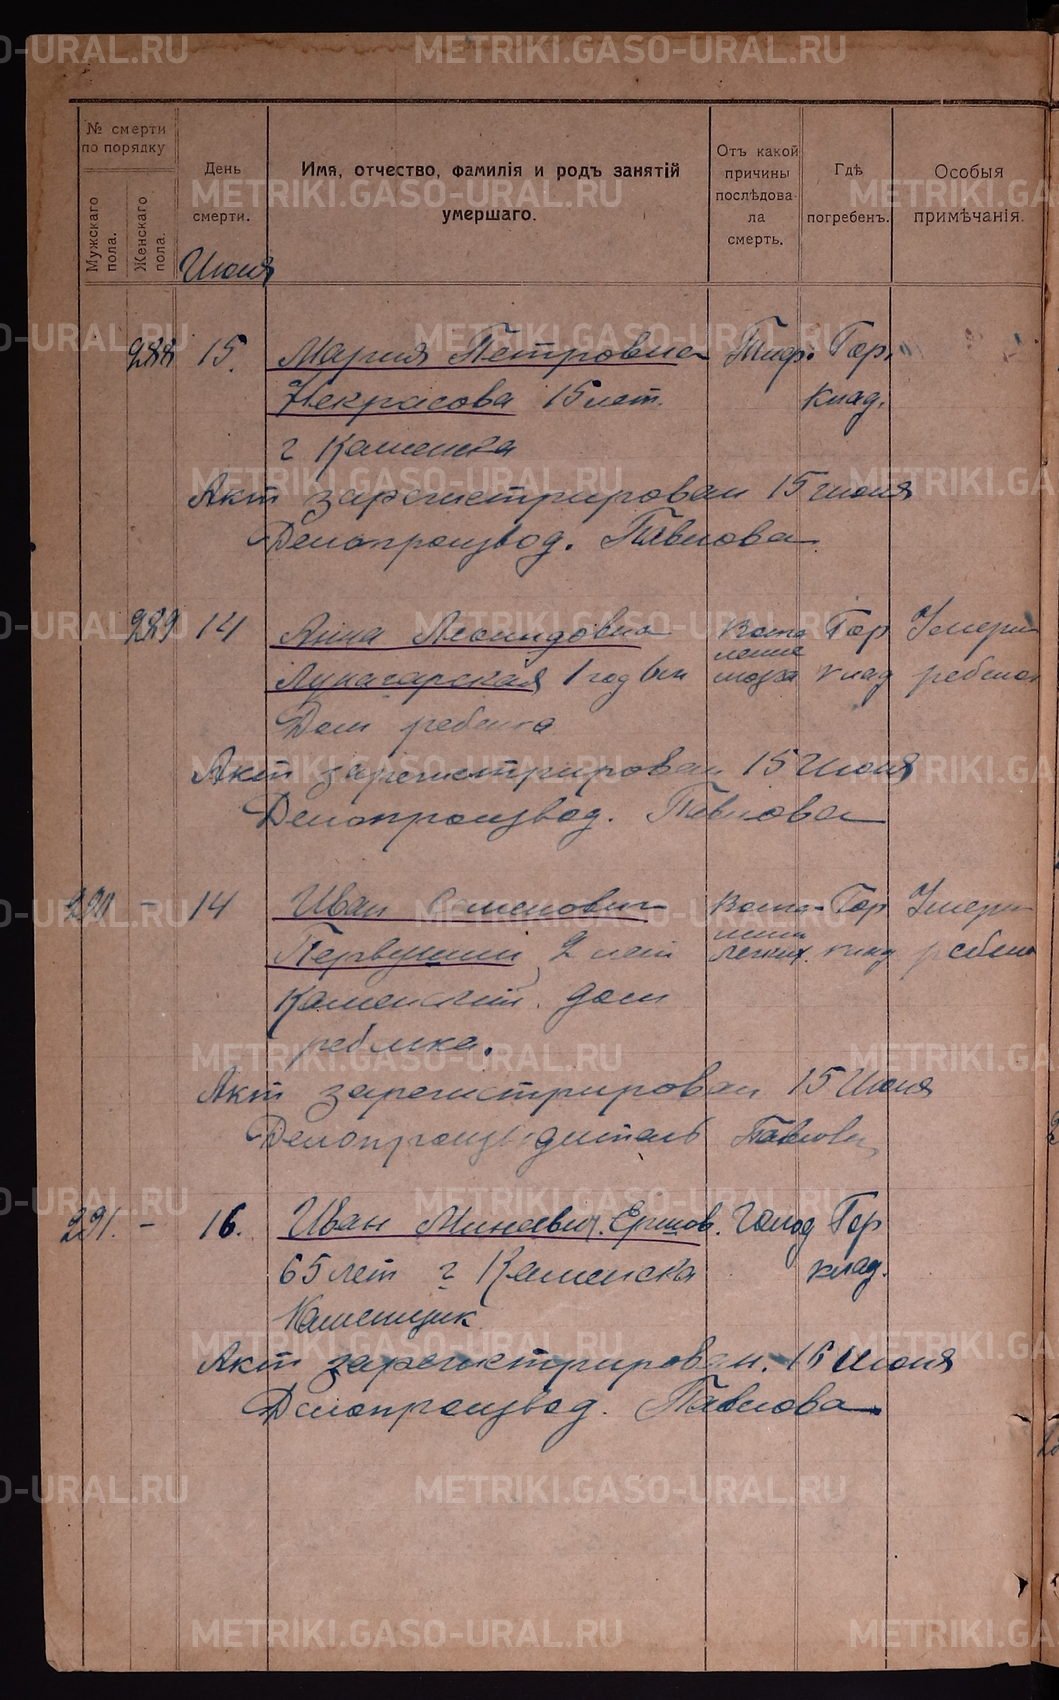 METRIKI.GASO-URAL.RU
№ смерти по порядку
Мужскаго пола.
Женскаго пола.
День смерти.
Имя, отчество, фамилія и родъ занятій умершаго.
Отъ какой причины послѣдовала смерть.
Гдѣ погребенъ.
Особыя примѣчанія.
Июня
288 15. Мария Петровна Тиф. Гор.
Некрасова 15 лет. клад.
г Каменска
Акт зарегистрирован 15 июня
Делопроизвод. Павлова
289 14 Анна Воспа Гор Умерш
ление
Луначарская 1 год мозга клад ребенок
Дом ребенка
Акт зарегистрирован 15 Июня
Делопроизвод. Павлова
290 - 14 Иван Семенович Воспа- Гор Умерш
ление
Первушин 2 лет легких клад ребено
Каменский дом
ребенка.
Акт зарегистрирован 15 Июня
Делопроизводитель Павлова
291. - 16. Иван Минеевич. Ершов. Голод Гор
65 лет г Каменска клад.
Каменщик
Акт зарегистрирован. 16 Июня
Делопроизвод. Павлова